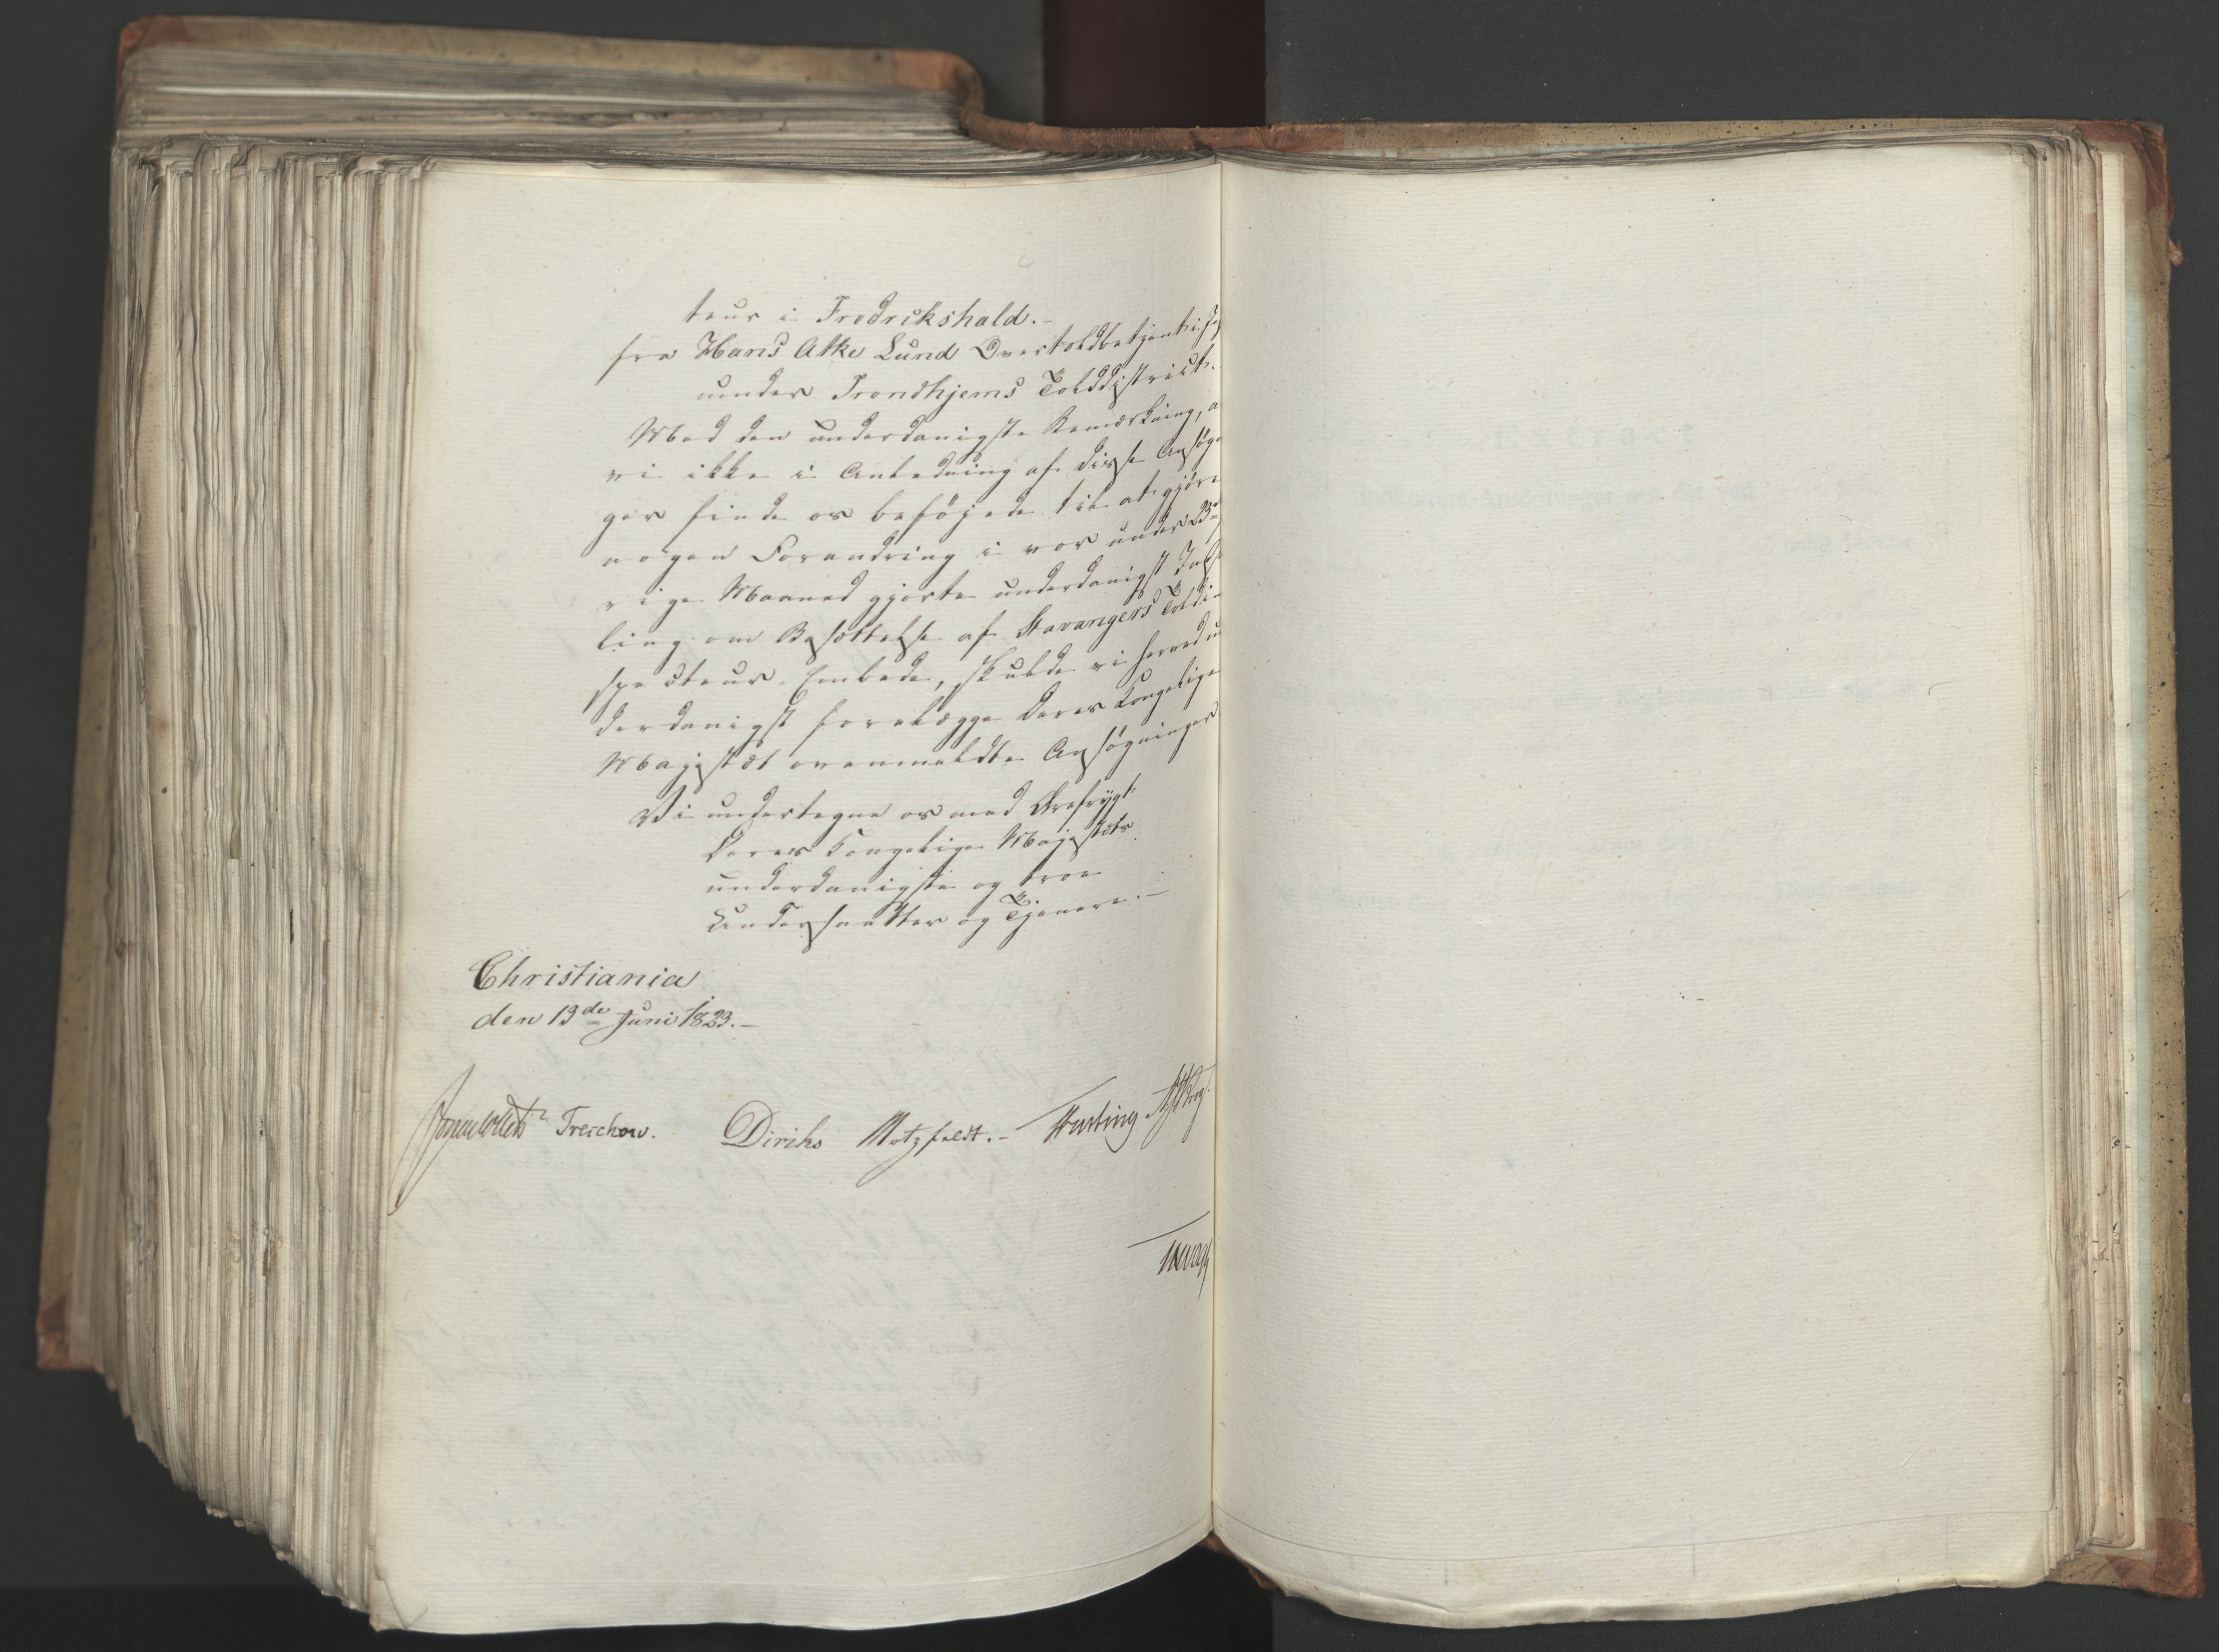 teur i Fredrikshald.-
fra Hans Atke Lund Overtoldbetjent i
under Trondhjems Tolddistrict.
Med den underdanigste Bemærkning, a
vi ikke i Anledning af disse Ansøg
ger finde os beføjede til at gjøre
nogen Forandring i vor under
rige Maaned gjorte underdanigst Indst
ling om Besættelse af Stavangers Toldin
specteur-Embede, skulde vi herved u
derdanigst forelægge Deres Kongelige
Majestæt ovenmeldte Ansøgninger
Vi undertegne os med Ærefrygt
Deres Kongelige Majestæts
underdanigste og troe
Undersaatter og Tjenere.-
Christiania
den 13de Juni 1823.-
Treschow. Diriks Motzfeldt.-